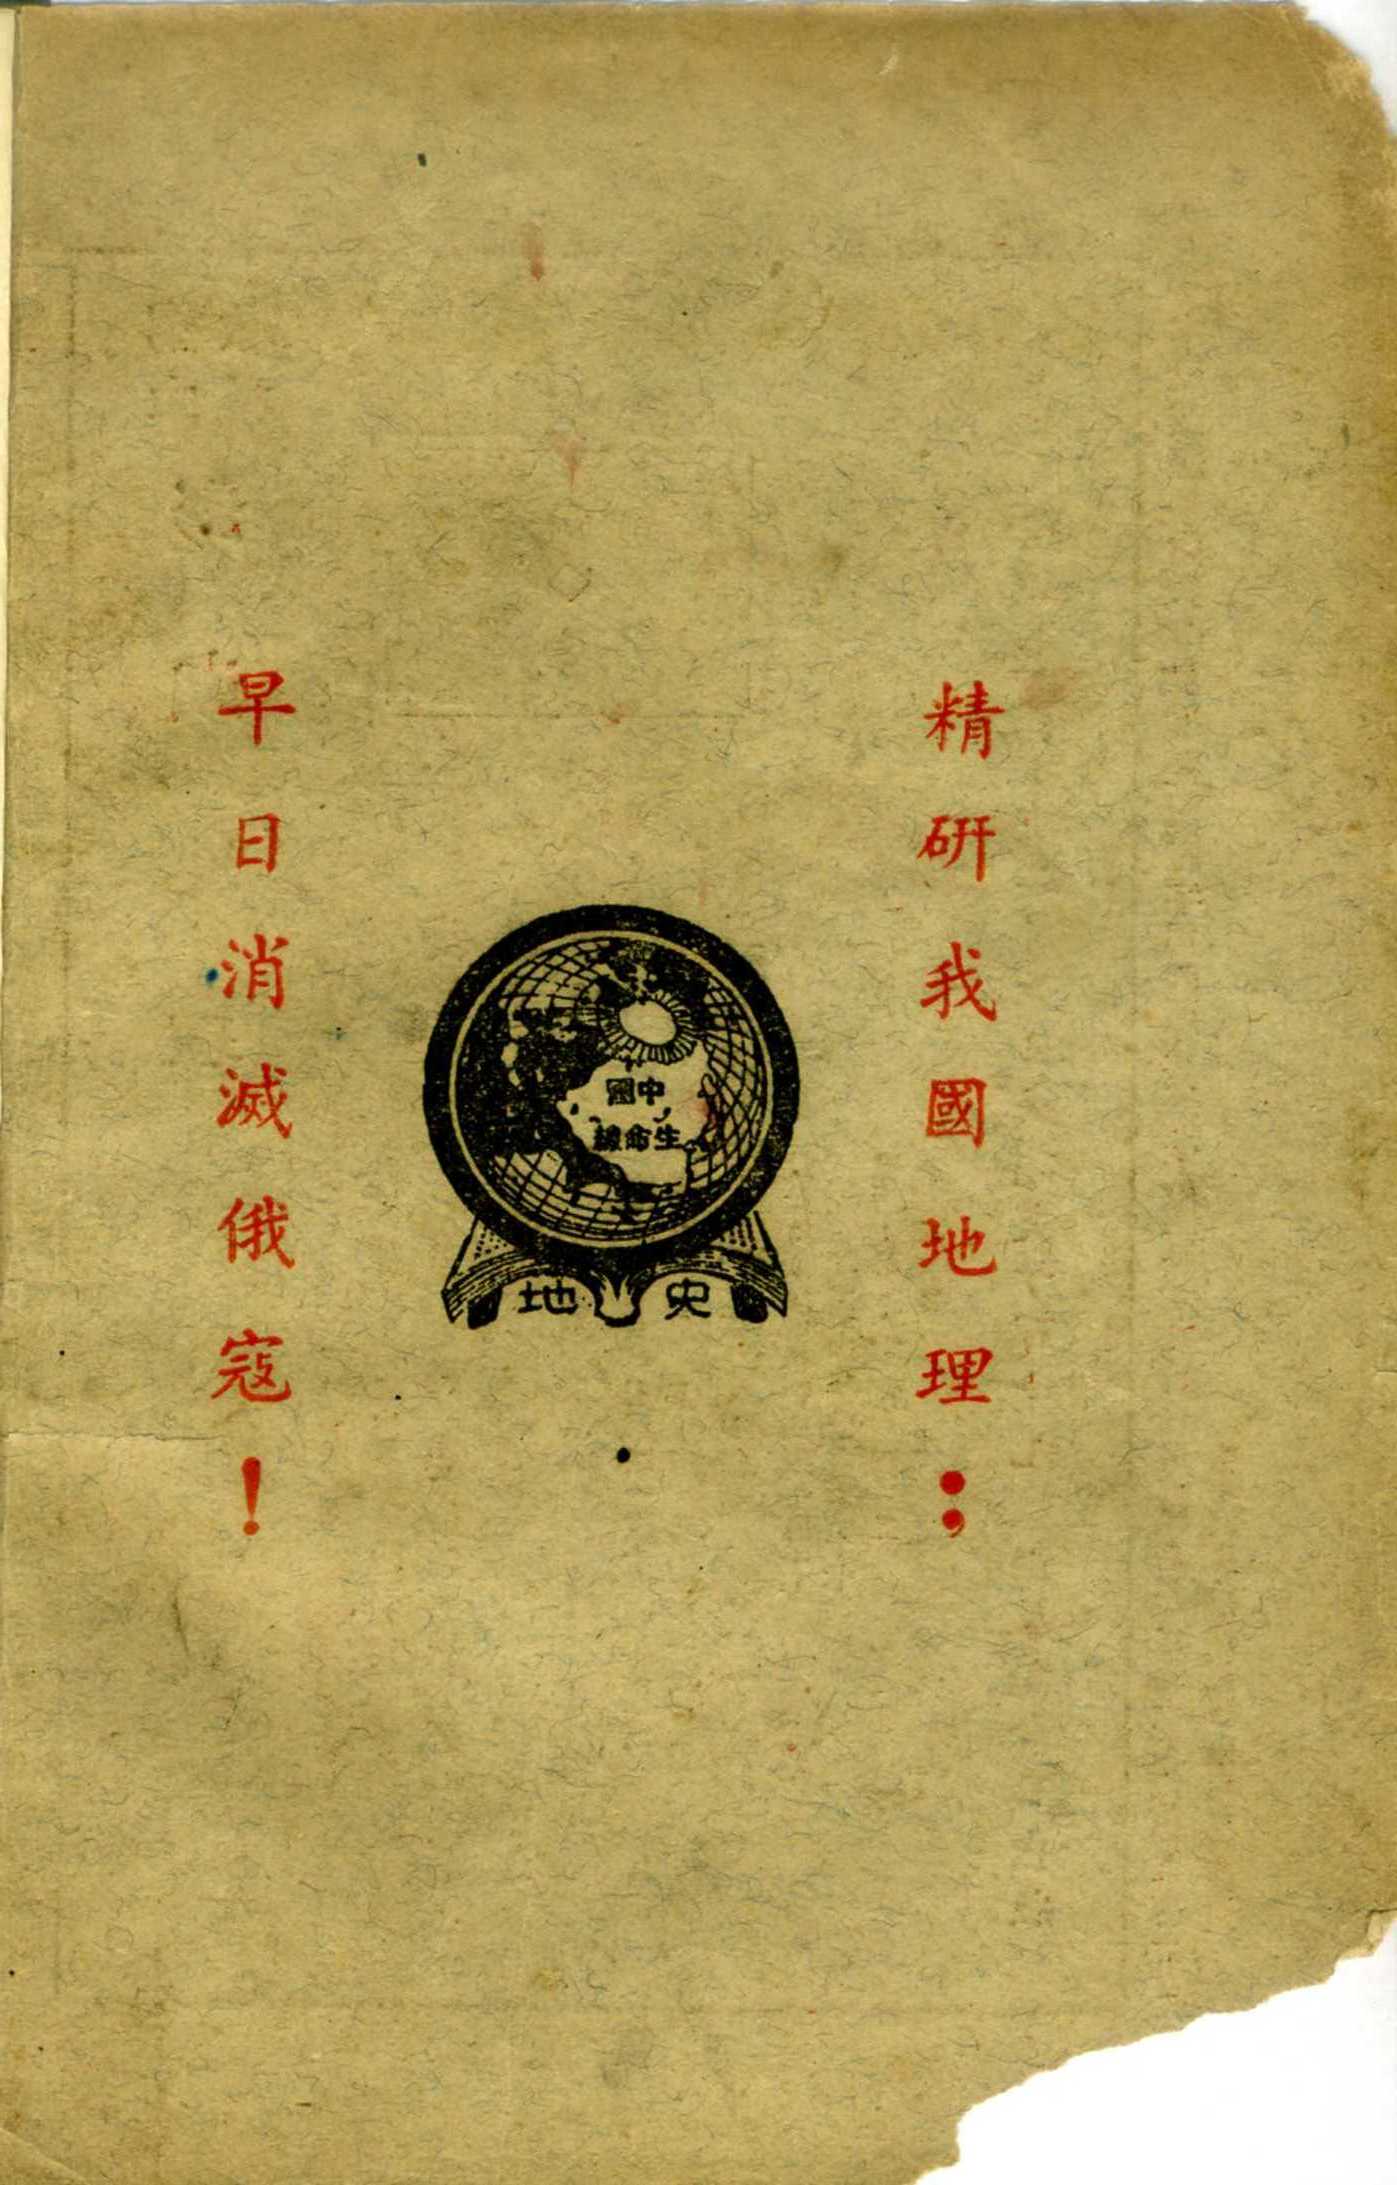 精研我國地理；
早日消滅俄寇！
中國
生命線
史地